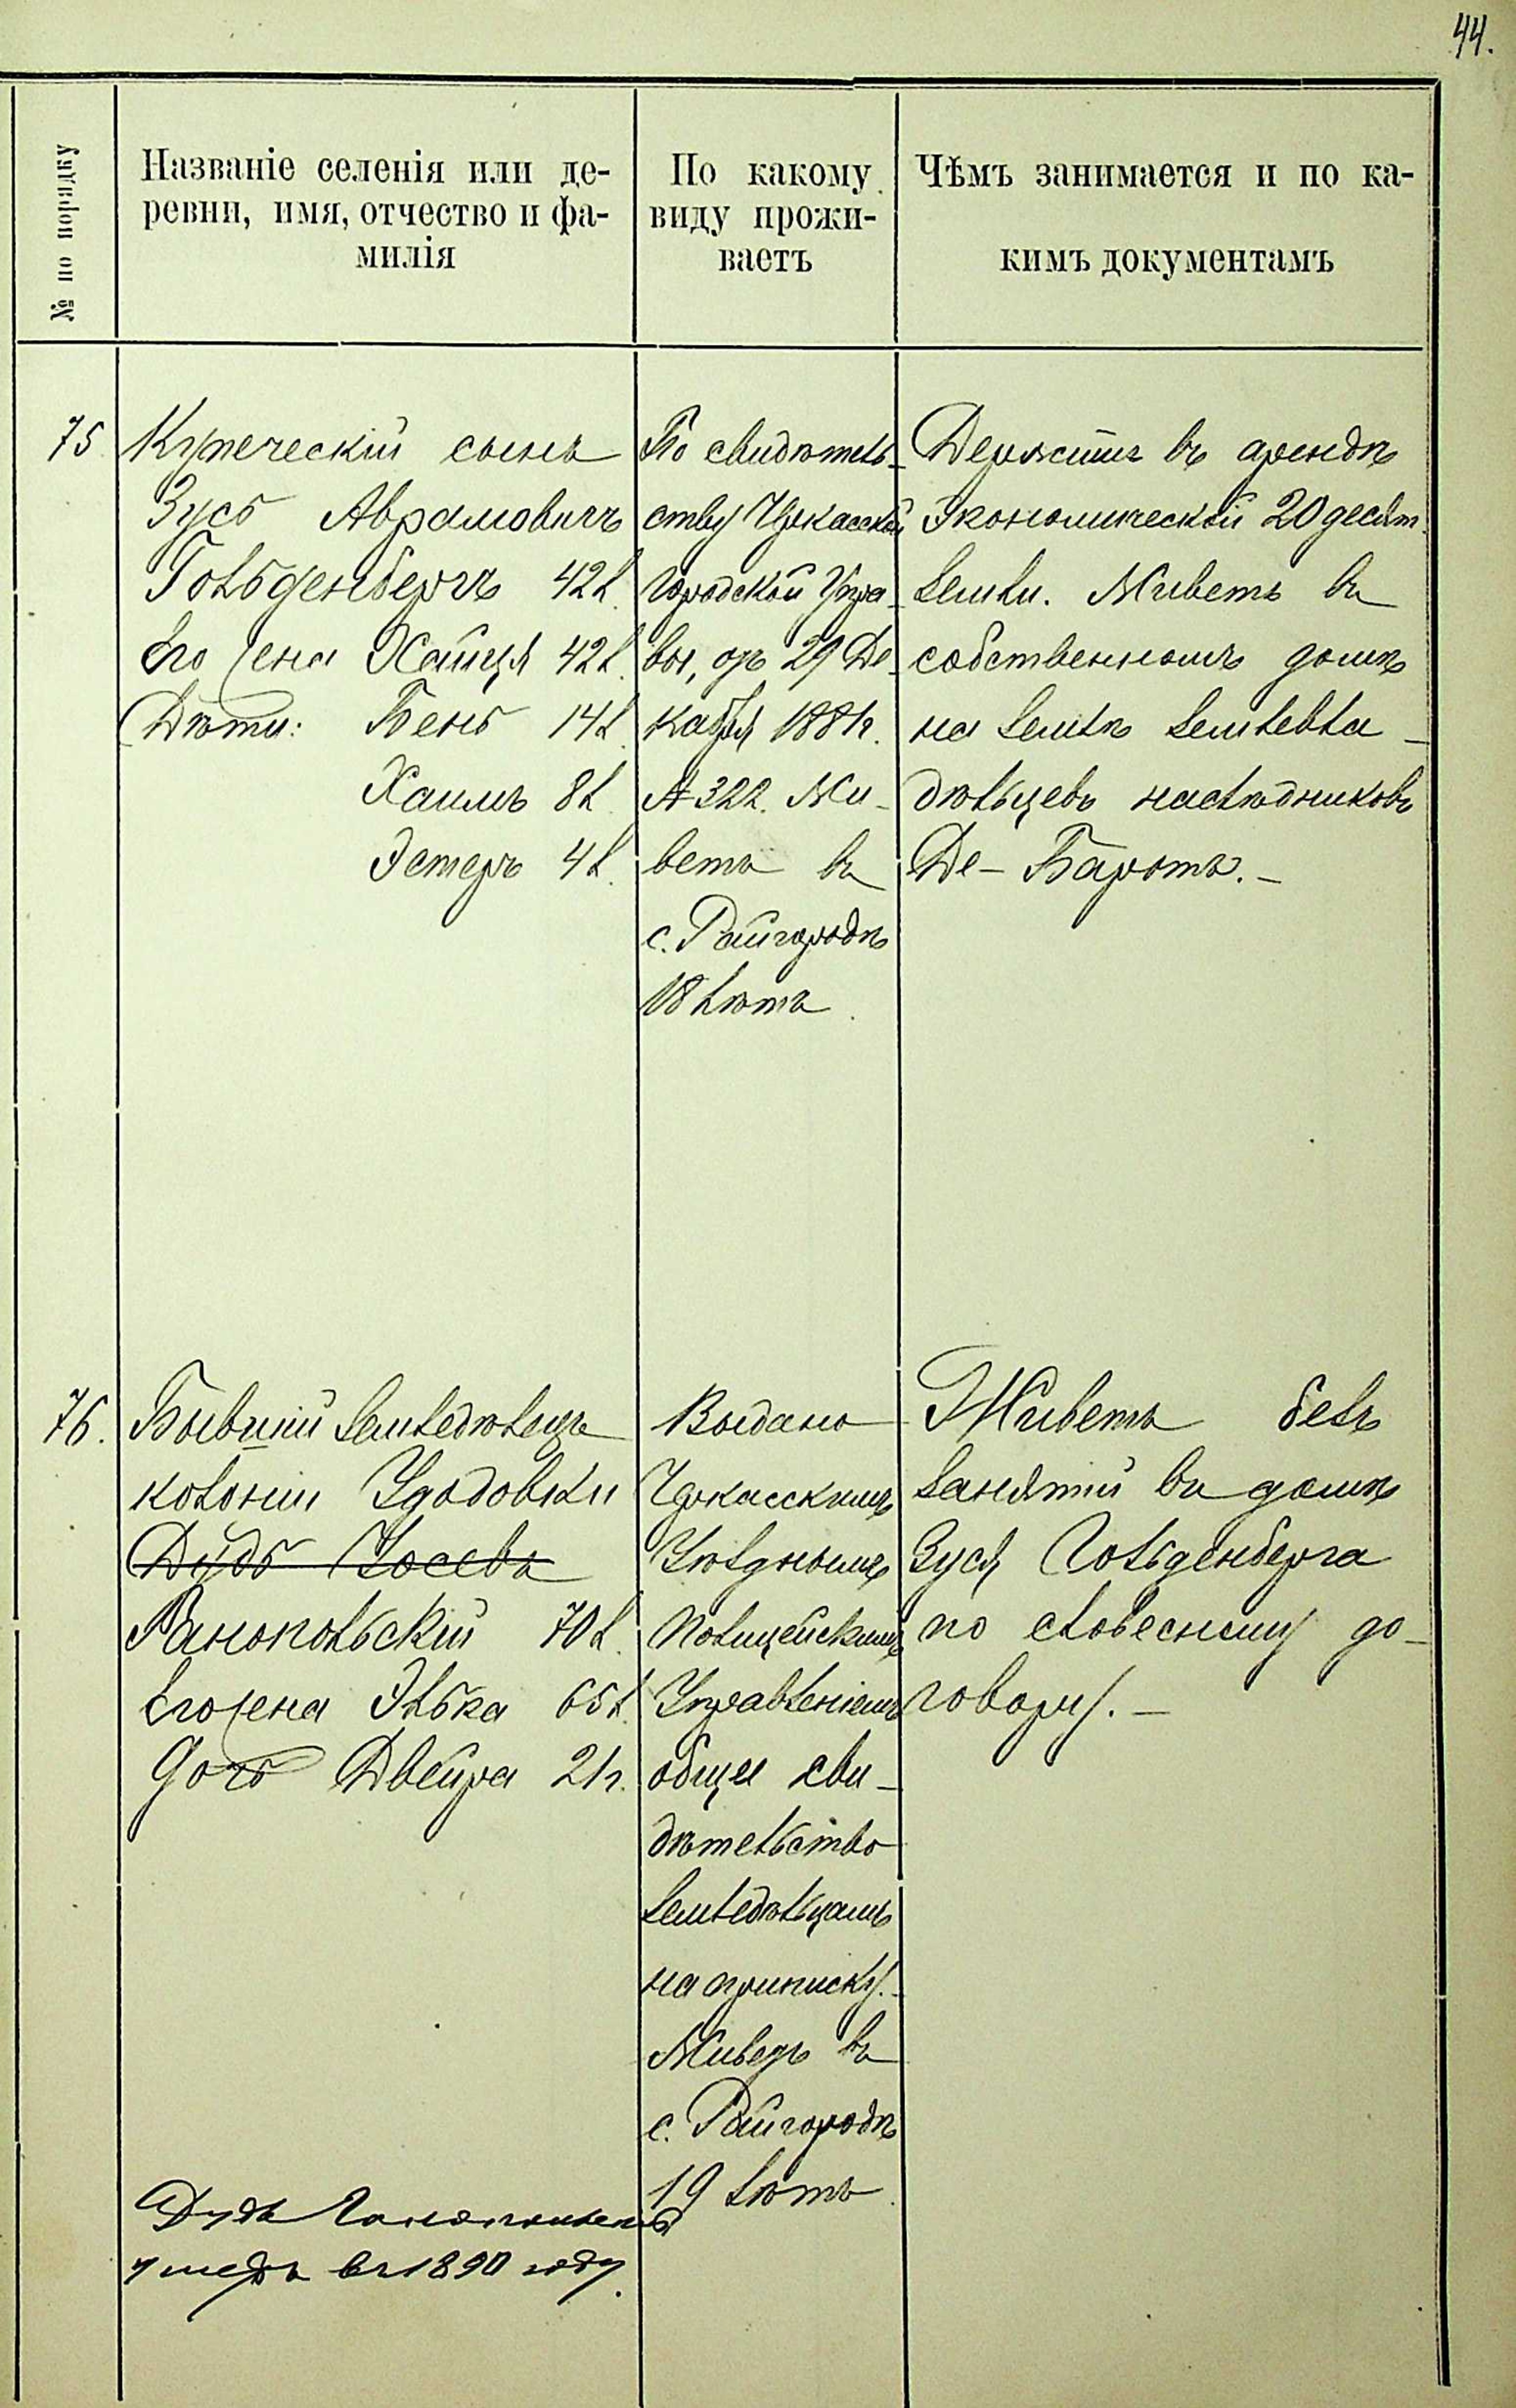 44.
№ по порядку
Названіе селенія или де-
ревни, имя, отчество и фа-
милія
По какому
виду прожи-
ваетъ
Чѣмъ занимается и по ка-
кимъ документамъ
75
Купеческій сынъ
Зусь Аврамовичъ
Гольденбергъ 42 л.
Его жена Хайця 42 л.
Дѣти: Бень 14 л.
Хаимъ 8 л.
Эстеръ 4 л.
По свидѣтель-
ству Черкасской
Городской Упра-
вы, отъ 29 Де-
кабря 1881 г.
№ 322. Жи-
ветъ въ
с. Райгородѣ
18 лѣтъ
Держитъ въ арендѣ
Экономической 20 десят.
земли. Живетъ въ
собственномъ домѣ
на землѣ землевла-
дѣльцевъ наслѣдниковъ
Де-Баротъ.-
76.
Бывшій земледѣлецъ
колоніи Удодовки
Дудь Иосевъ
Ранопольскій 70 л.
Его жена Элька 65 л.
Дочь Двейра 21 г.
Дудь
умеръ въ 1890 году.
Выдано
Черкасскимъ
Уѣзднымъ
Полицейскимъ
Управленіемъ
общее сви-
дѣтельство
земледѣльцамъ
на приписку.-
Живетъ въ
с. Райгородѣ
19 лѣтъ.
Живетъ безъ
занятій въ домѣ
Зуся Гольденберга
по словесному до-
говору.-